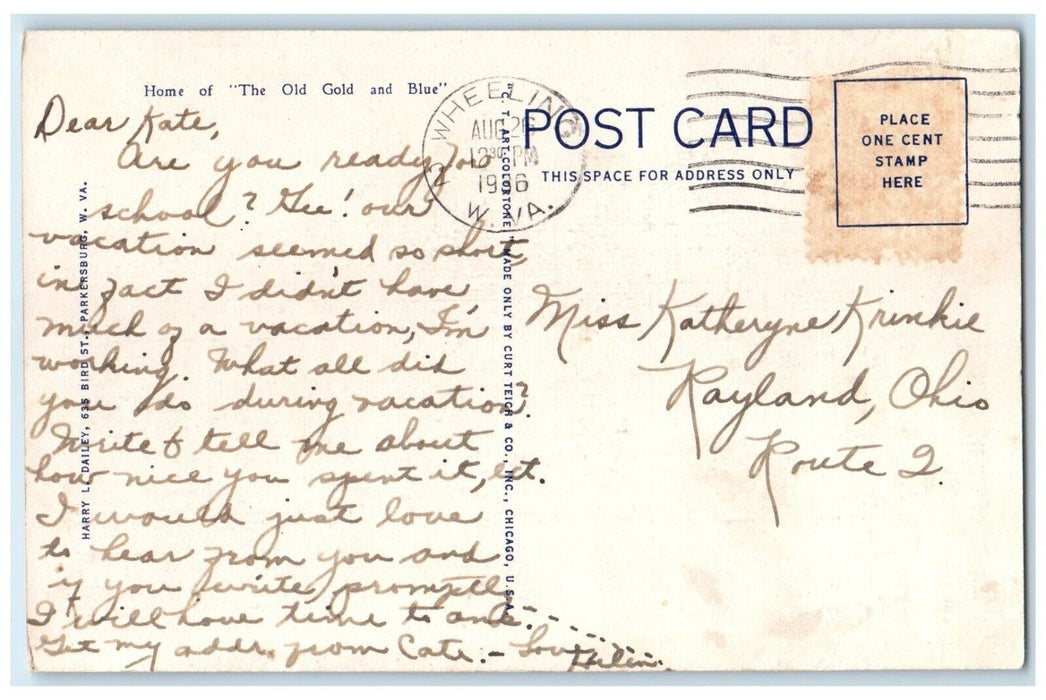 Home of "The Old Gold and Blue"
Dear Kate,
Are you ready for
school? Gee! our
vacation seemed so short,
in fact I didn't have
much of a vacation, I'm
working. What all did
you do during vacation?
Write & tell me about
how nice you spent it, et.
I would just love
to hear from you and
if you write promptly
I will have time to ans.
Get my addr. from Cate. - Love
Helen.
HARRY L. DAILEY, 635 BIRD ST., PARKERSBURG, W. VA.
"C. T. ART-COLORTONE" MADE ONLY BY CURT TEICH & CO., INC., CHICAGO, U.S.A.
WHEELING
AUG 26
12 30 PM
1936
W. VA.
2
POST CARD
THIS SPACE FOR ADDRESS ONLY
PLACE
ONE CENT
STAMP
HERE
Miss Katheryne Krinkie
Rayland, Ohio
Route 2.